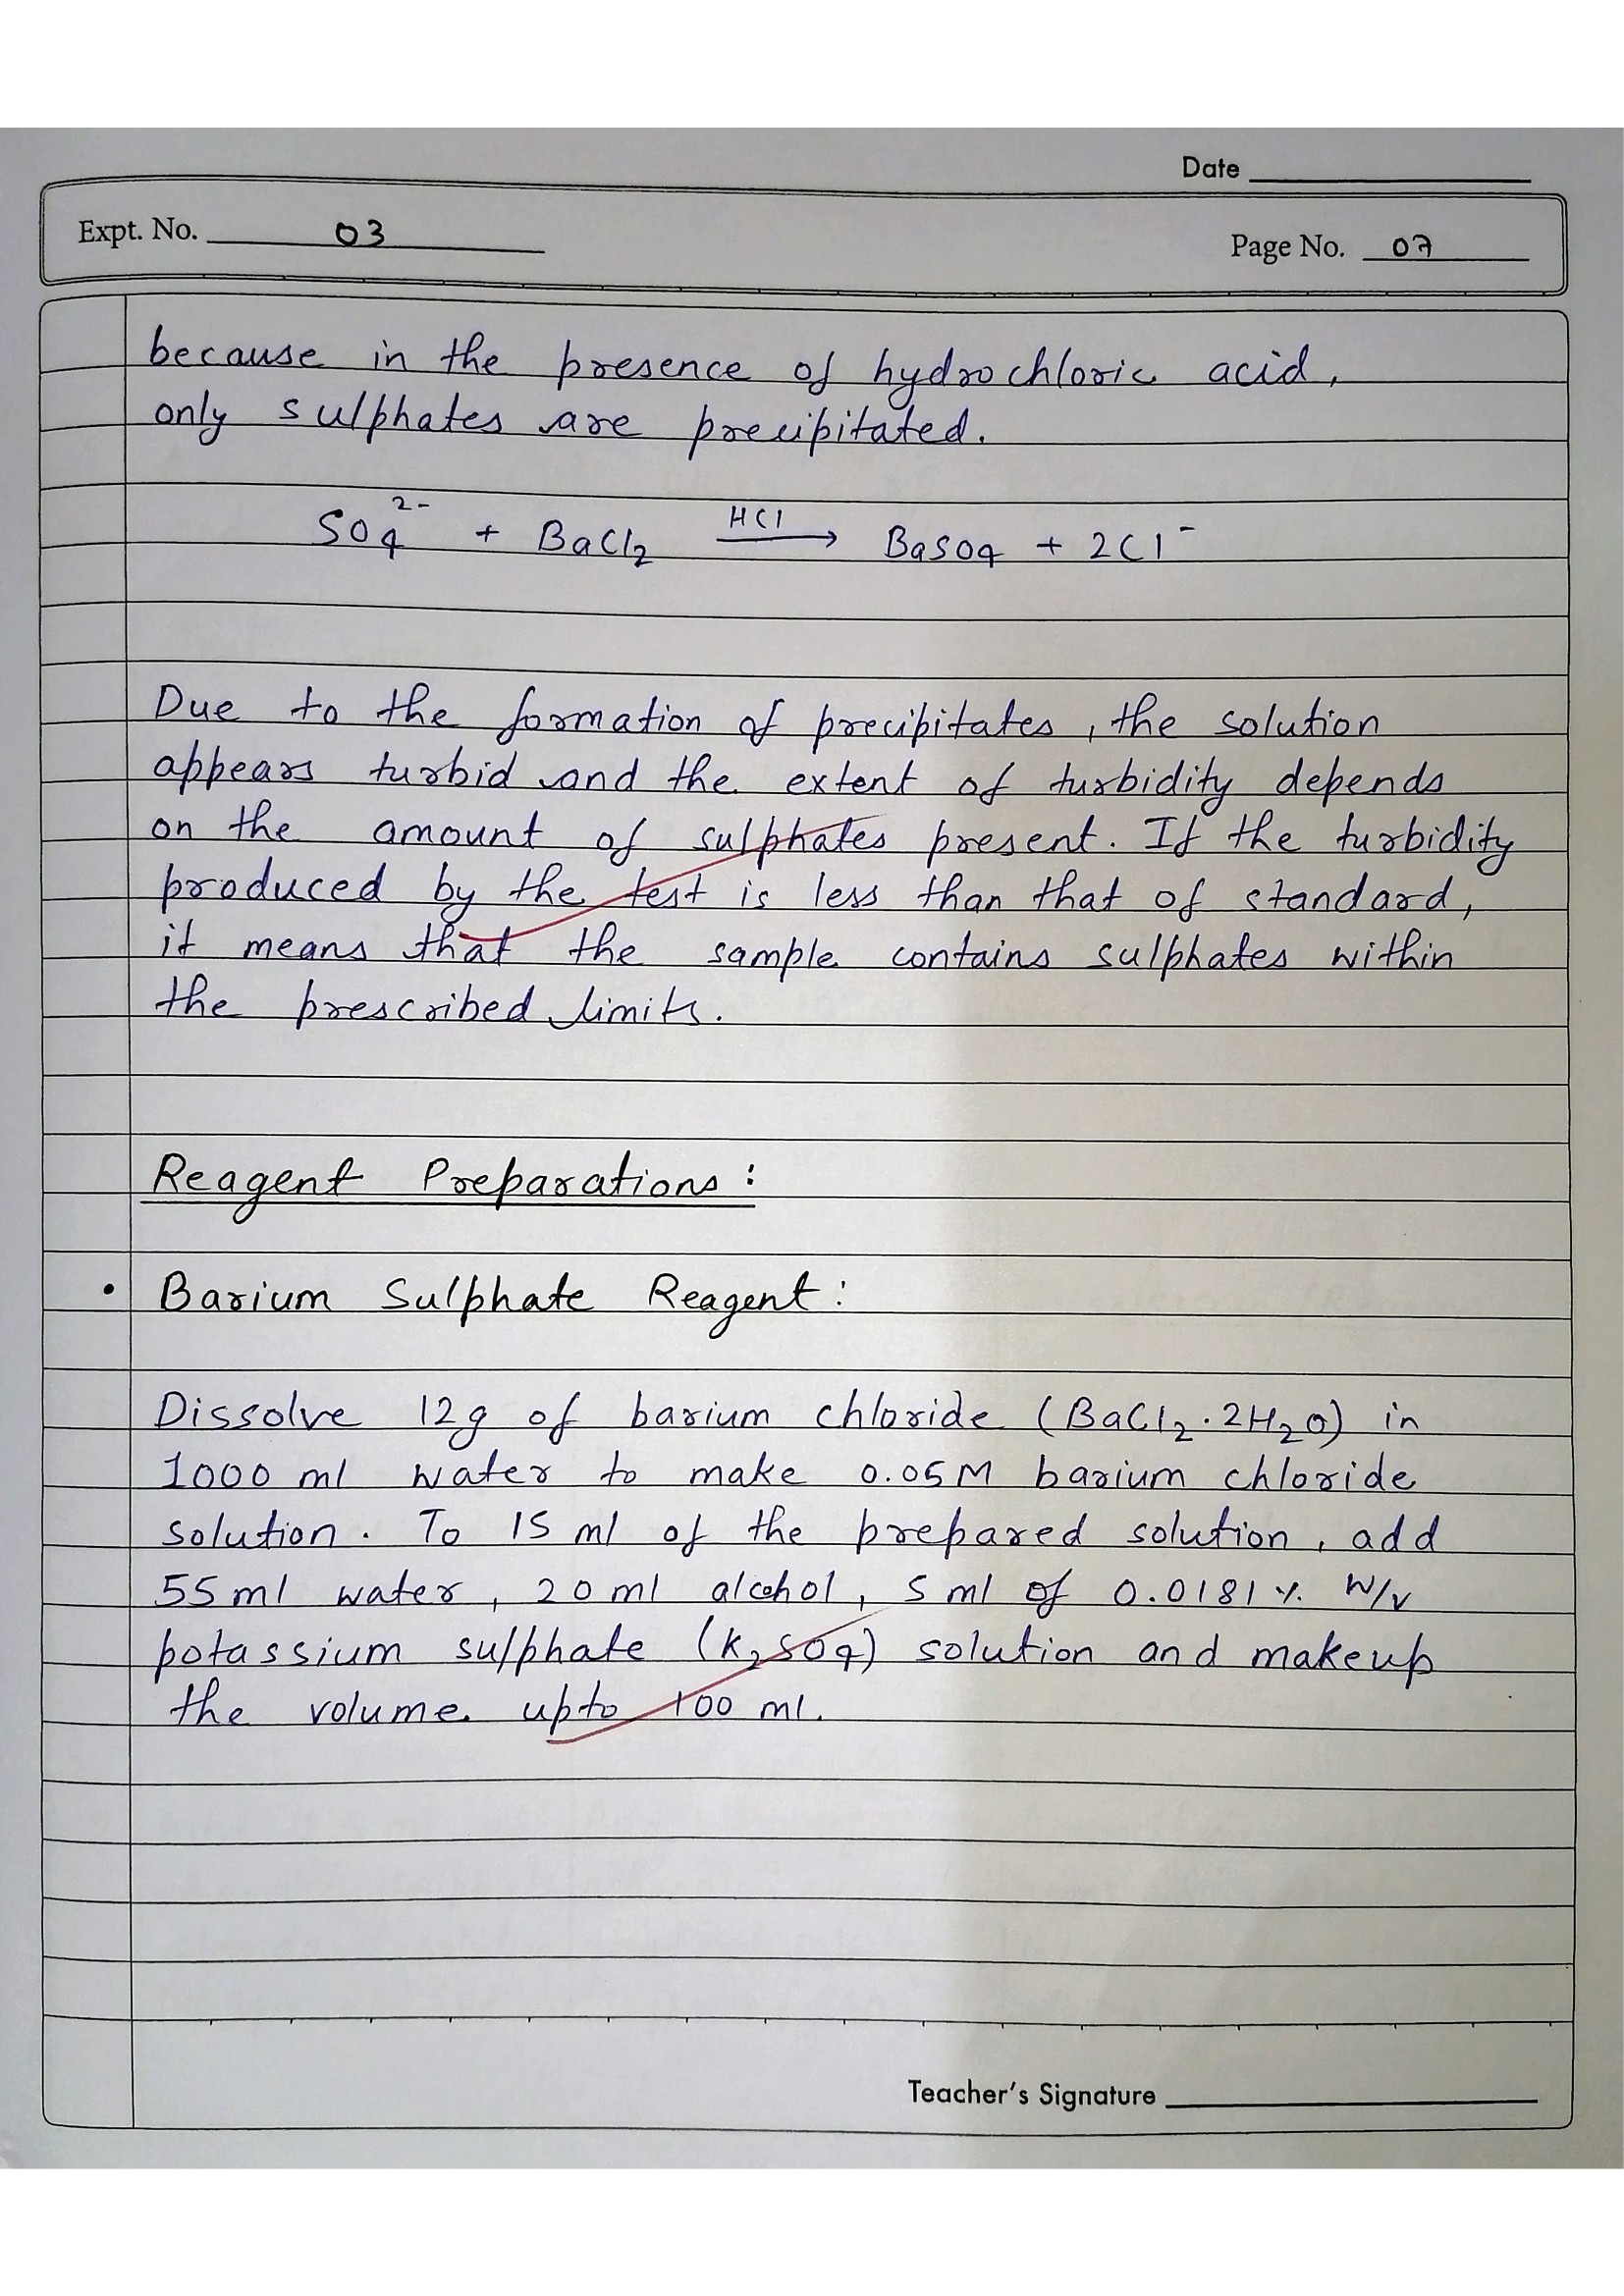 Date
Expt. No. 03
Page No. 07
because in the presence of hydrochloric acid,
only sulphates are precipitated.
SO₄²⁻ + BaCl₂ HCl → BaSO₄ + 2Cl⁻
Due to the formation of precipitates, the solution
appears turbid and the extent of turbidity depends
on the amount of sulphates present. If the turbidity
produced by the test is less than that of standard,
it means that the sample contains sulphates within
the prescribed limits.
Reagent Preparations :
• Barium Sulphate Reagent :
Dissolve 12g of barium chloride (BaCl₂·2H₂O) in
1000 ml water to make 0.05M barium chloride
solution. To 15 ml of the prepared solution, add
55 ml water, 20 ml alcohol, 5 ml of 0.0181% W/V
potassium sulphate (K₂SO₄) solution and makeup
the volume upto 100 ml.
Teacher's Signature